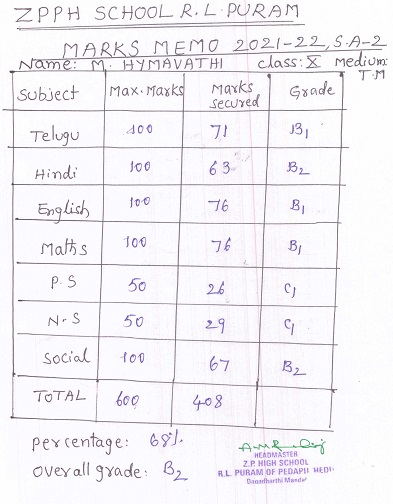 ZPPH SCHOOL R.L.PURAM
MARKS MEMO 2021-22, S.A-2
Name: M. HYMAVATHI class: X Medium: T.M
Subject Max.Marks Marks secured Grade
Telugu 100 71 B1
Hindi 100 63 B2
English 100 76 B1
Maths 100 76 B1
P.S 50 26 C1
N.S 50 29 C1
Social 100 67 B2
TOTAL 600 408
percentage: 68%.
overall grade: B2
HEADMASTER
Z.P. HIGH SCHOOL
R.L. PURAM OF PEDAPU MEDI
Mandal